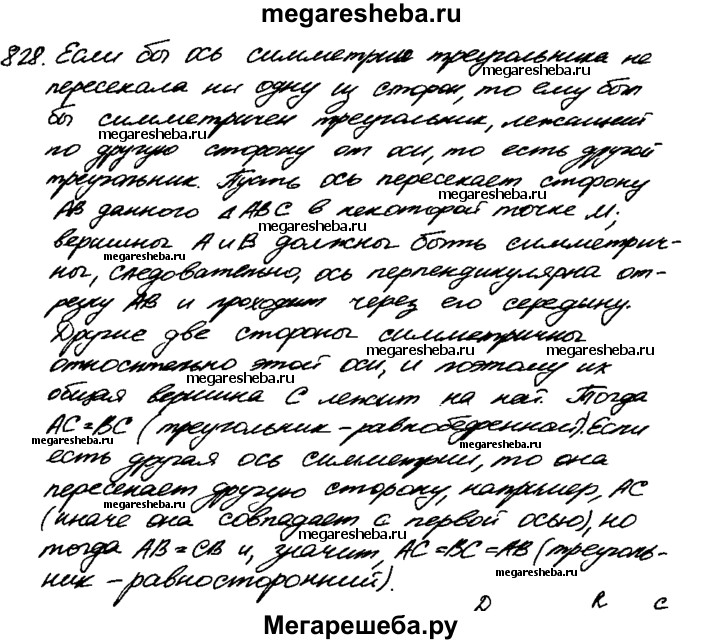 megaresheba.ru
828. Если бы ось симметрии треугольника не
megaresheba.ru
пересекала ни одну из сторон, то ему был
бы симметричен треугольник, лежащий
megaresheba.ru
по другую сторону от оси, то есть другой
треугольник. Пусть ось пересекает сторону
megaresheba.ru
AB данного ΔABC в некоторой точке M;
megaresheba.ru
вершины A и B должны быть симметрич-
ны, следовательно, ось перпендикулярна от-
резку AB и проходит через его середину.
Другие две стороны симметричны
megaresheba.ru
относительно этой оси, и поэтому их
megaresheba.ru
общая вершина C лежит на ней. Тогда
AC=BC (треугольник – равнобедренный). Если
megaresheba.ru
есть другая ось симметрии, то она
megaresheba.ru
пересекает другую сторону, например, AC
(иначе она совпадает с первой осью), но
megaresheba.ru
тогда AB=CB и, значит, AC=BC=AB (треуголь-
megaresheba.ru
ник – равносторонний).
D R C
Мегарешеба.ру